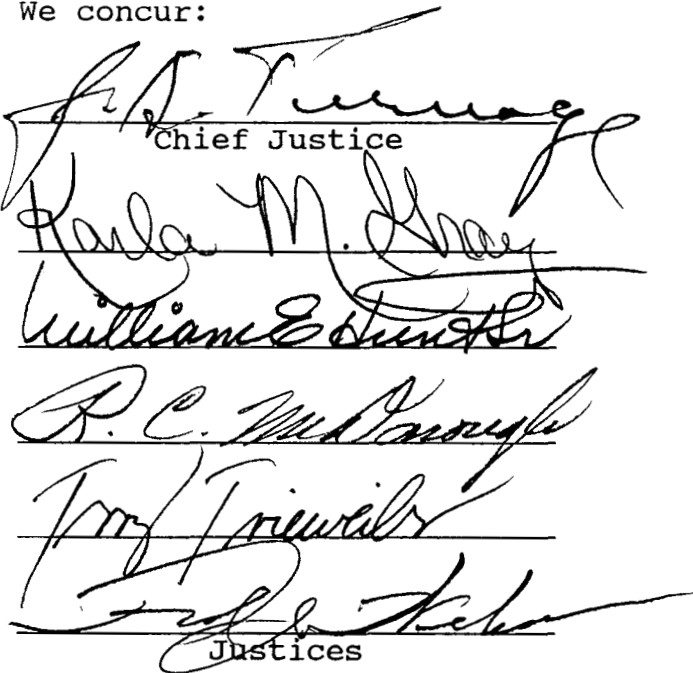 We concur:
J. A. Turnage
Chief Justice
Karla M. Gray
William E Hunt Sr
R. C. McDonough
Terry Trieweiler
Justices